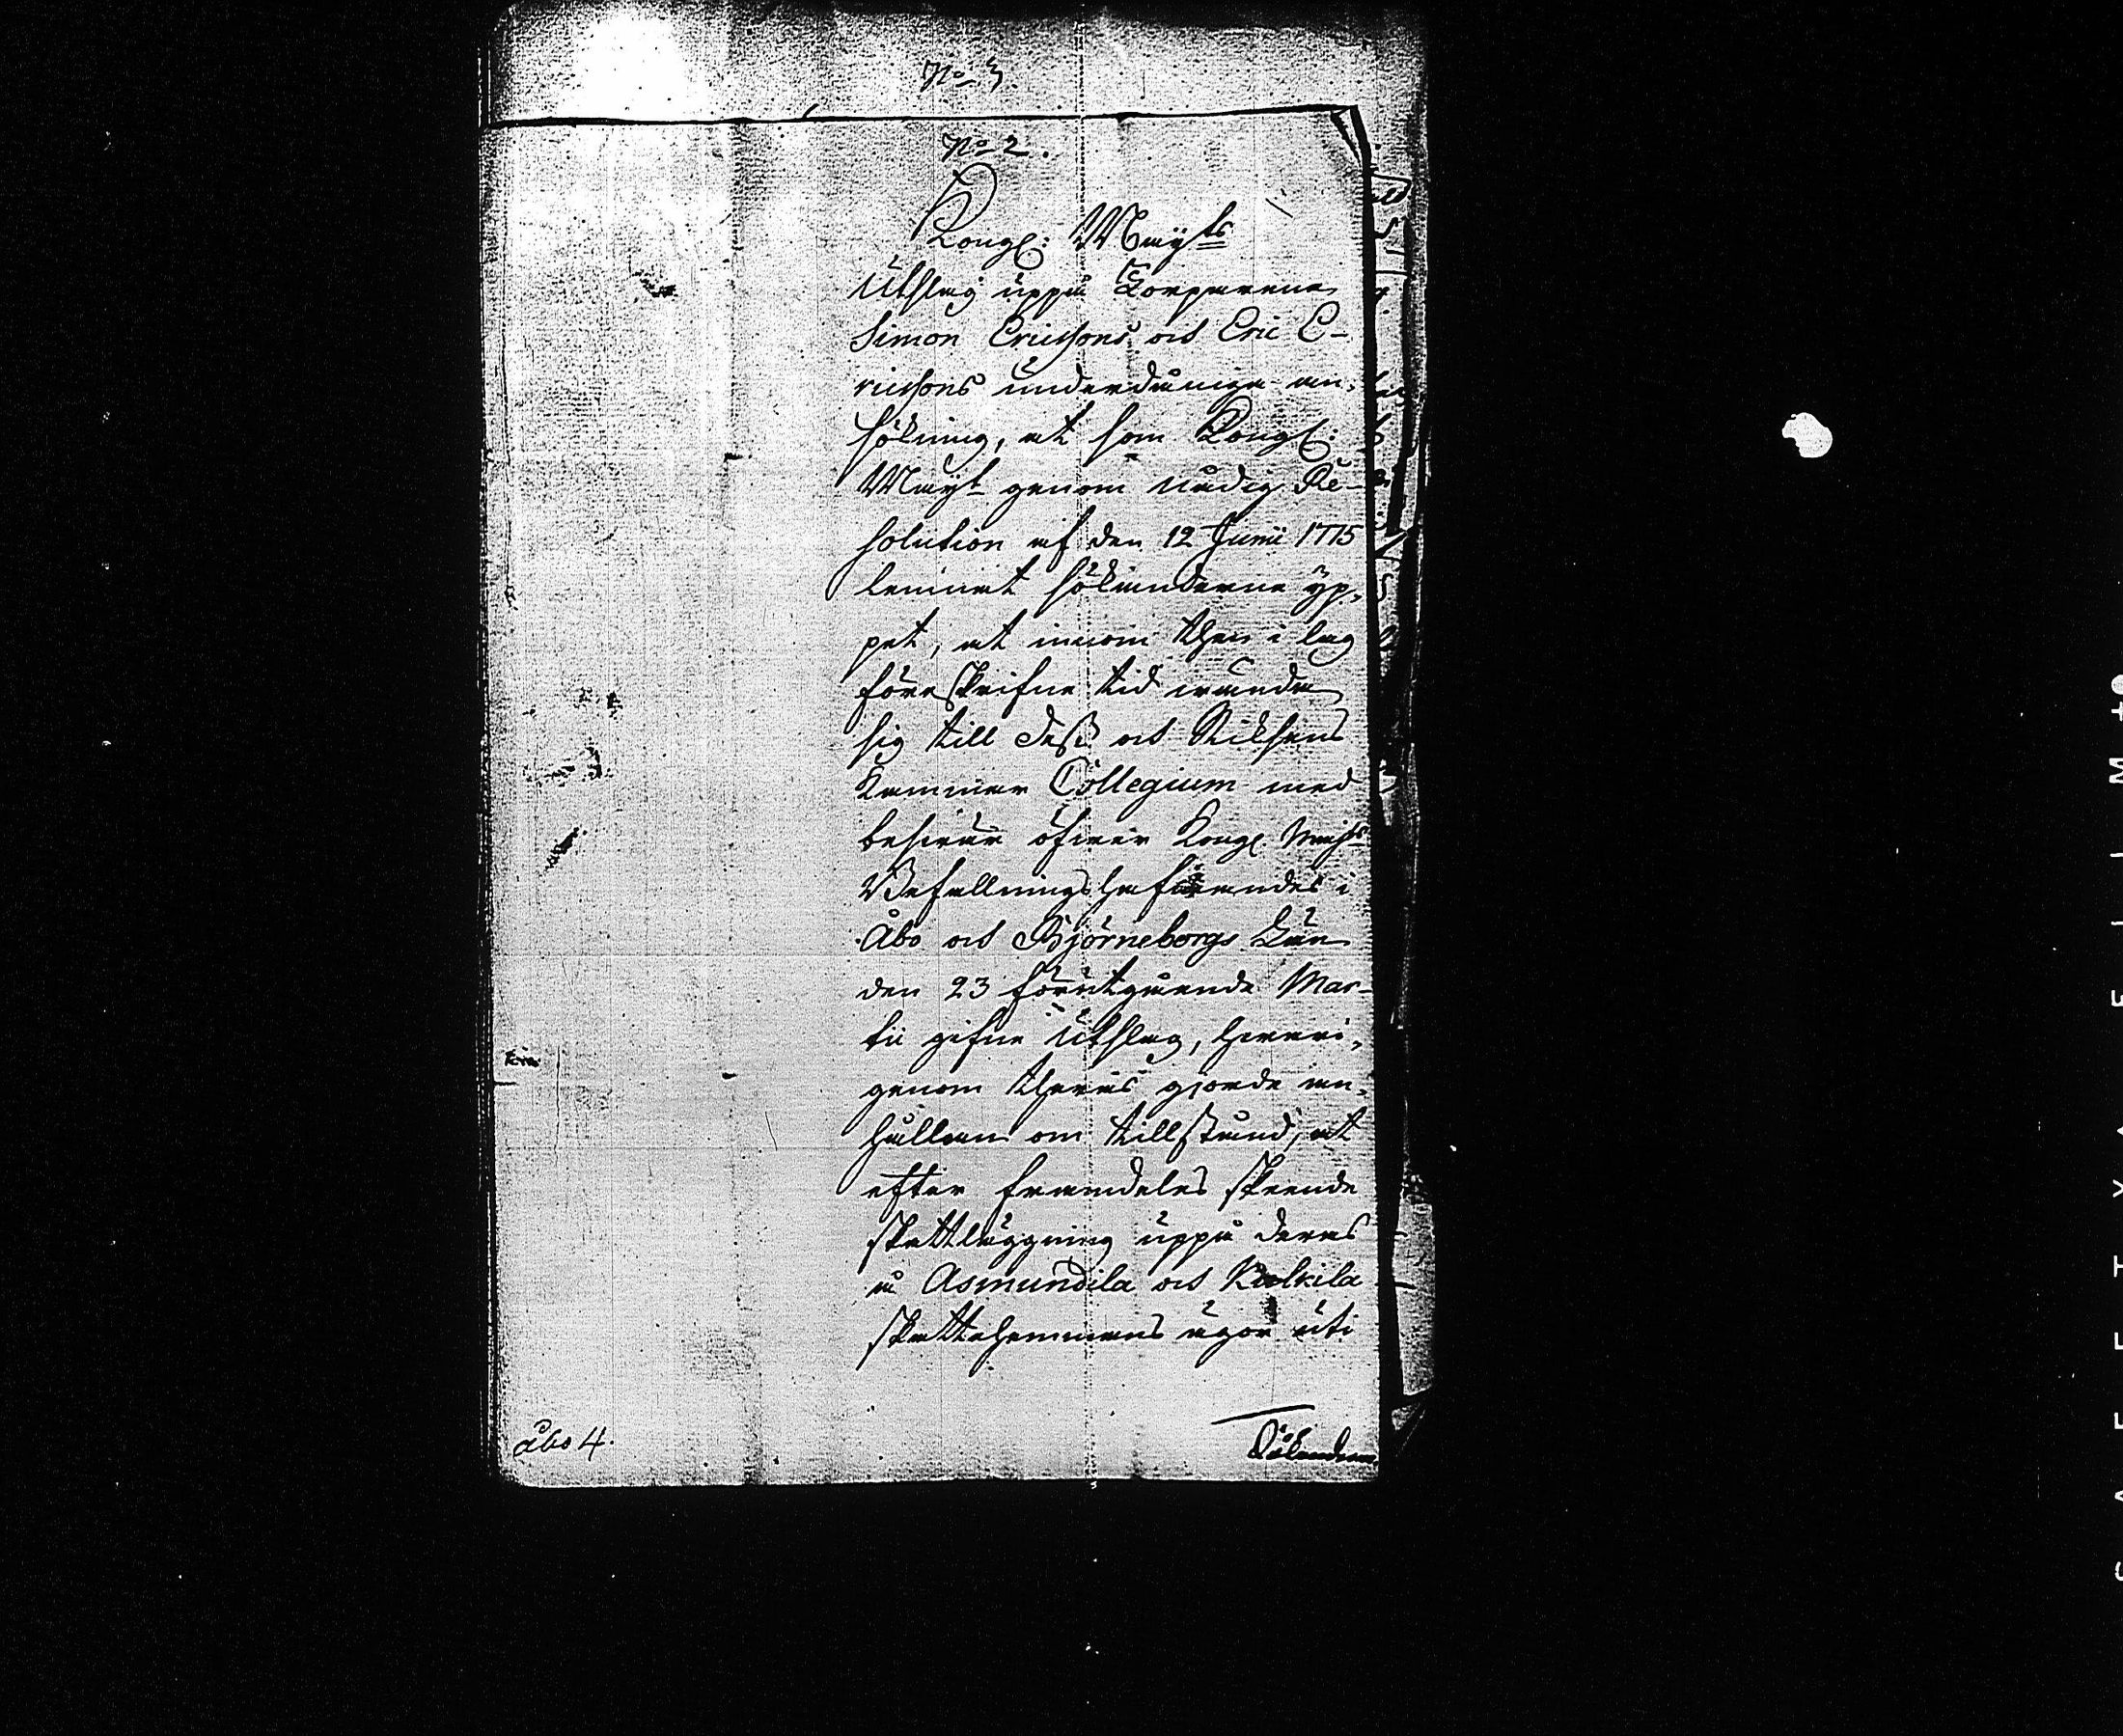 No 3.
No 2.
Kongl: Maÿts
Utslag uppå Torparena
Simon Ericssons och Eric E-
ricssons underdåniga an-
sökning, at som Kongl:
Maÿt genom nådig Re-
solution af den 12 Junii 1775
lemnat sökanderne öp-
pet, at innom then i lag
föreskrifne tid wända
sig till Dess och Riksens
Kammar Collegium med
beswär öfwer Kongl Maÿts
Befallningshafwandes i
Åbo och Björneborgs Län
den 23 förutgående Mar-
tii gifne Utslag, hwari-
genom theras gjorde an-
hållan om tillstånd, at
efter framdeles skeende
skattläggning uppå deras
å Asmundila och Kulkila
skattehemmans ägor uti
åbo 4.
Sökandrne